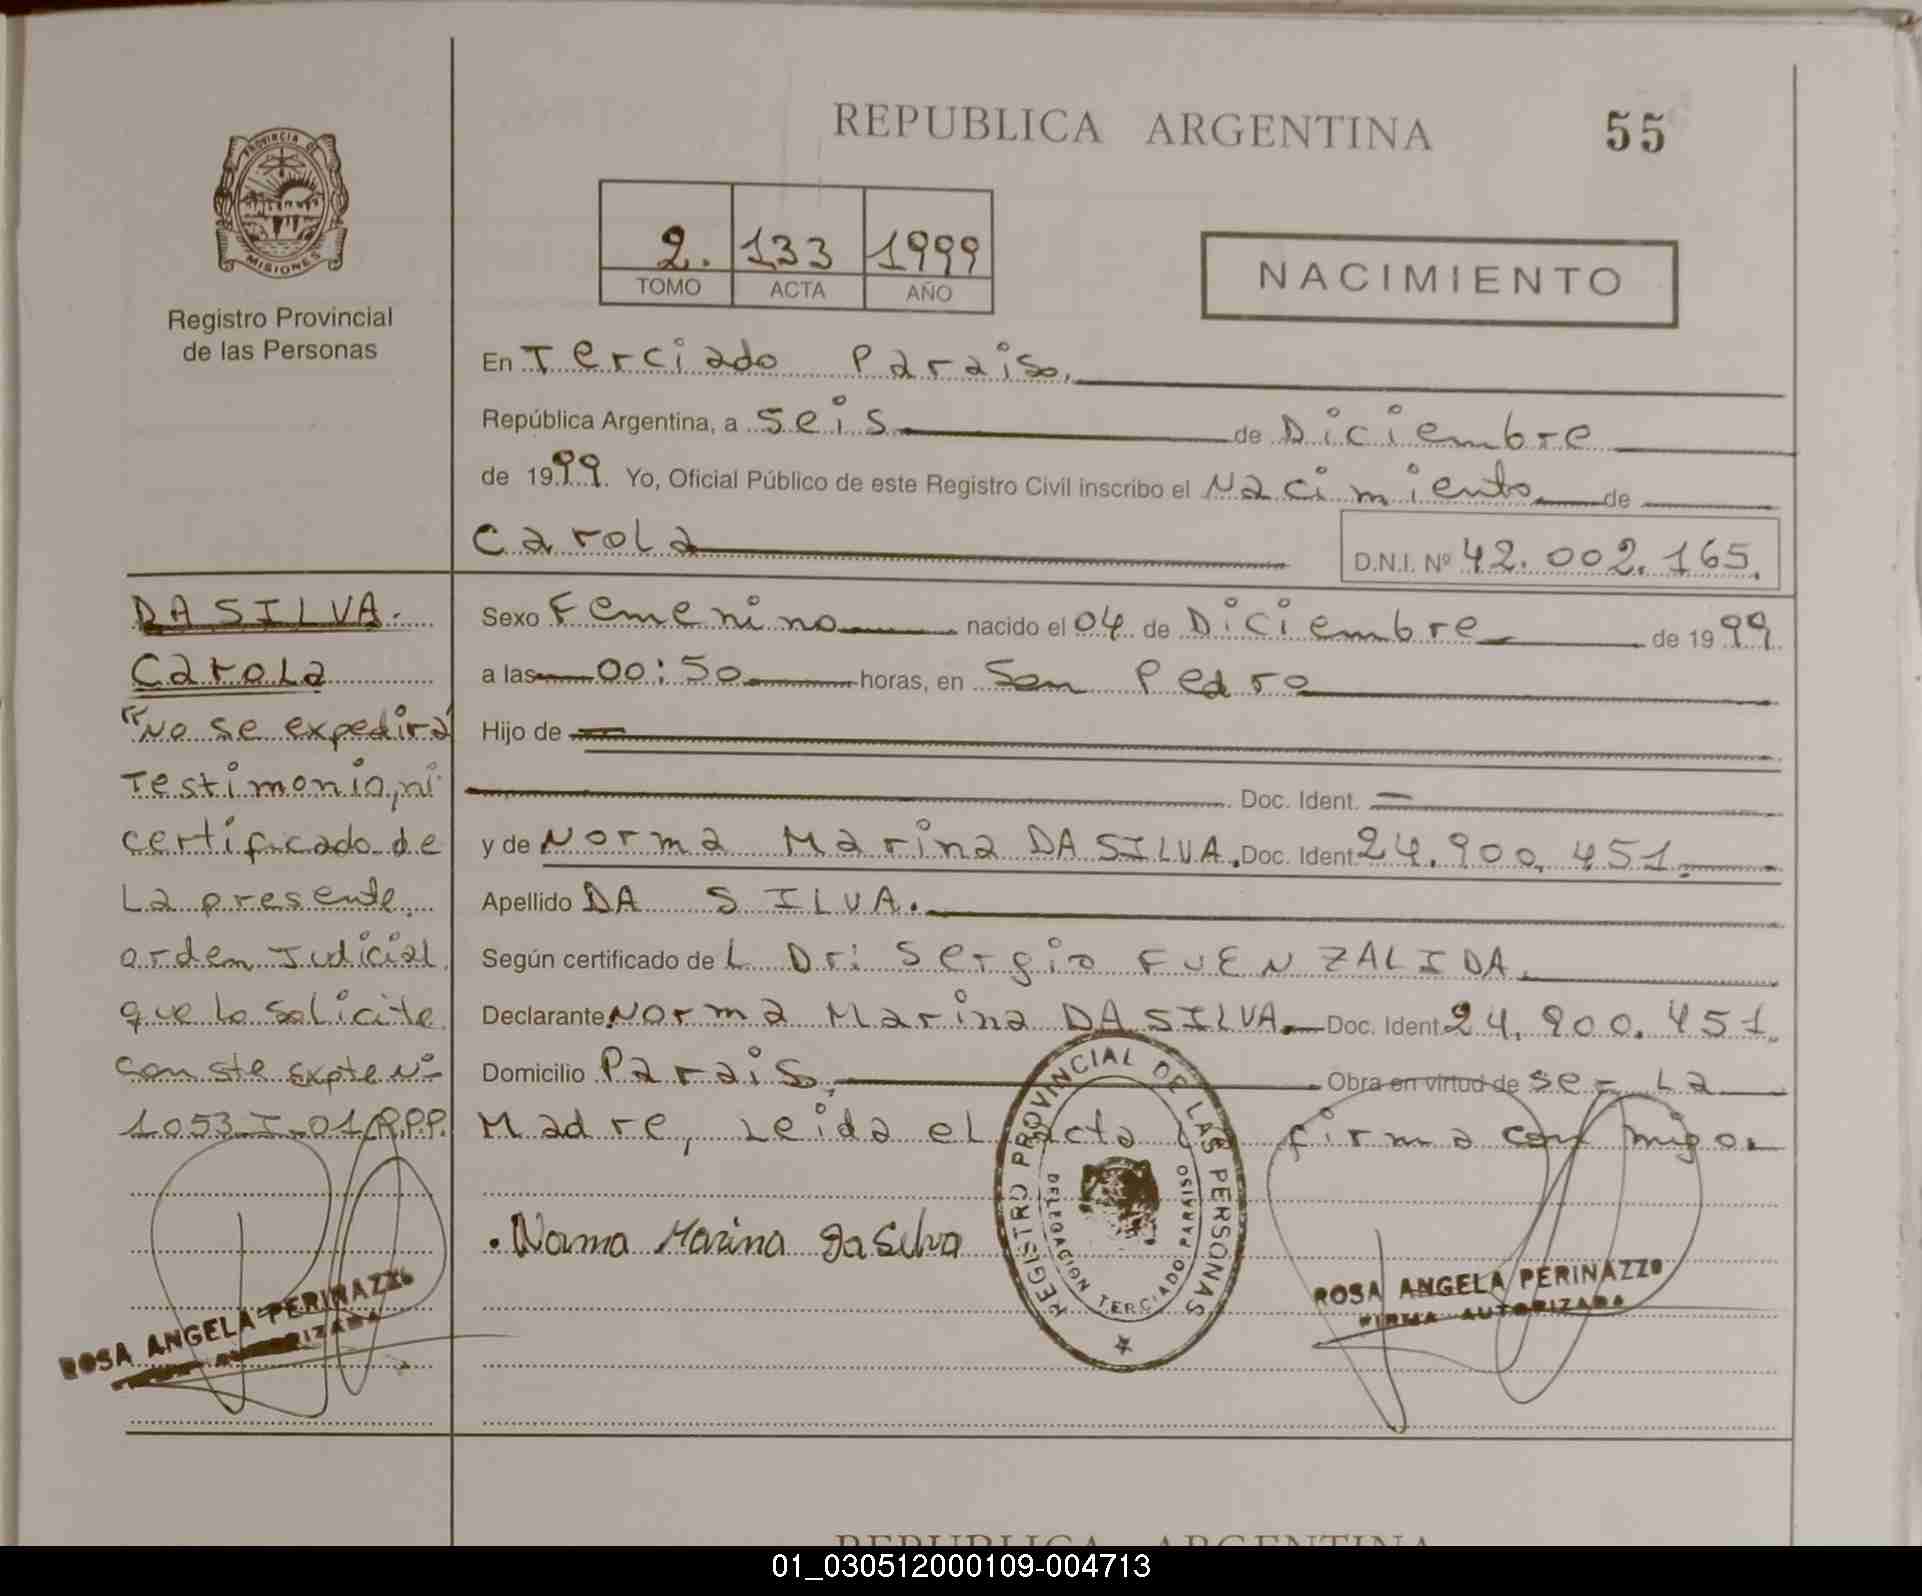 REPUBLICA ARGENTINA
55
PROVINCIA DE
MISIONES
Registro Provincial
de las Personas
2. 133 1999
TOMO ACTA AÑO
NACIMIENTO
En Terciado Paraiso.
República Argentina, a seis de Diciembre
de 1999. Yo, Oficial Público de este Registro Civil inscribo el Nacimiento de
Carola
D.N.I. Nº 42.002.165.
DA SILVA.
Carola
"No se expedirá
Testimonio, ni
certificado de
La presente,
orden Judicial
que lo solicite
conste Expte Nº
1053-I-01 R.P.P.
ROSA ANGELA PERINAZZO
AUTORIZADA
Sexo Femenino nacido el 04 de Diciembre de 1999
a las 00:50 horas, en San Pedro
Hijo de
Doc. Ident.
y de Norma Marina DA SILVA. Doc. Ident. 24.900.451.
Apellido DA SILVA.
Según certificado de L Dr: Sergio FUENZALIDA.
Declarante Norma Marina DA SILVA. Doc. Ident. 24.900.451.
Domicilio Paraiso, Obra en virtud de ser La
Madre, Leida el acta firma con migo.
. Norma Marina Da Silva
REGISTRO PROVINCIAL DE LAS PERSONAS
DELEGACION TERCIADO PARAISO
ROSA ANGELA PERINAZZO
FIRMA AUTORIZADA
REPUBLICA ARGENTINA
01_030512000109-004713